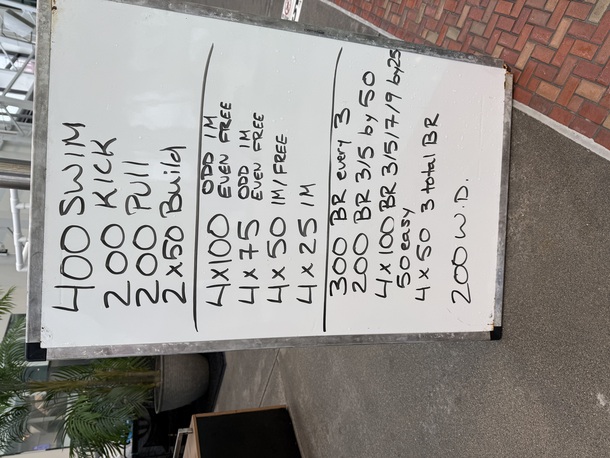 400 SWIM
200 KICK
200 PULL
2x50 Build
4x100 ODD IM
EVEN FREE
4x75 ODD IM
EVEN FREE
4x50 IM/FREE
4x25 IM
300 BR every 3
200 BR 3/5 by 50
4x100 BR 3/5/7/9 by 25
50 easy
4x50 3 total BR
200 W.D.